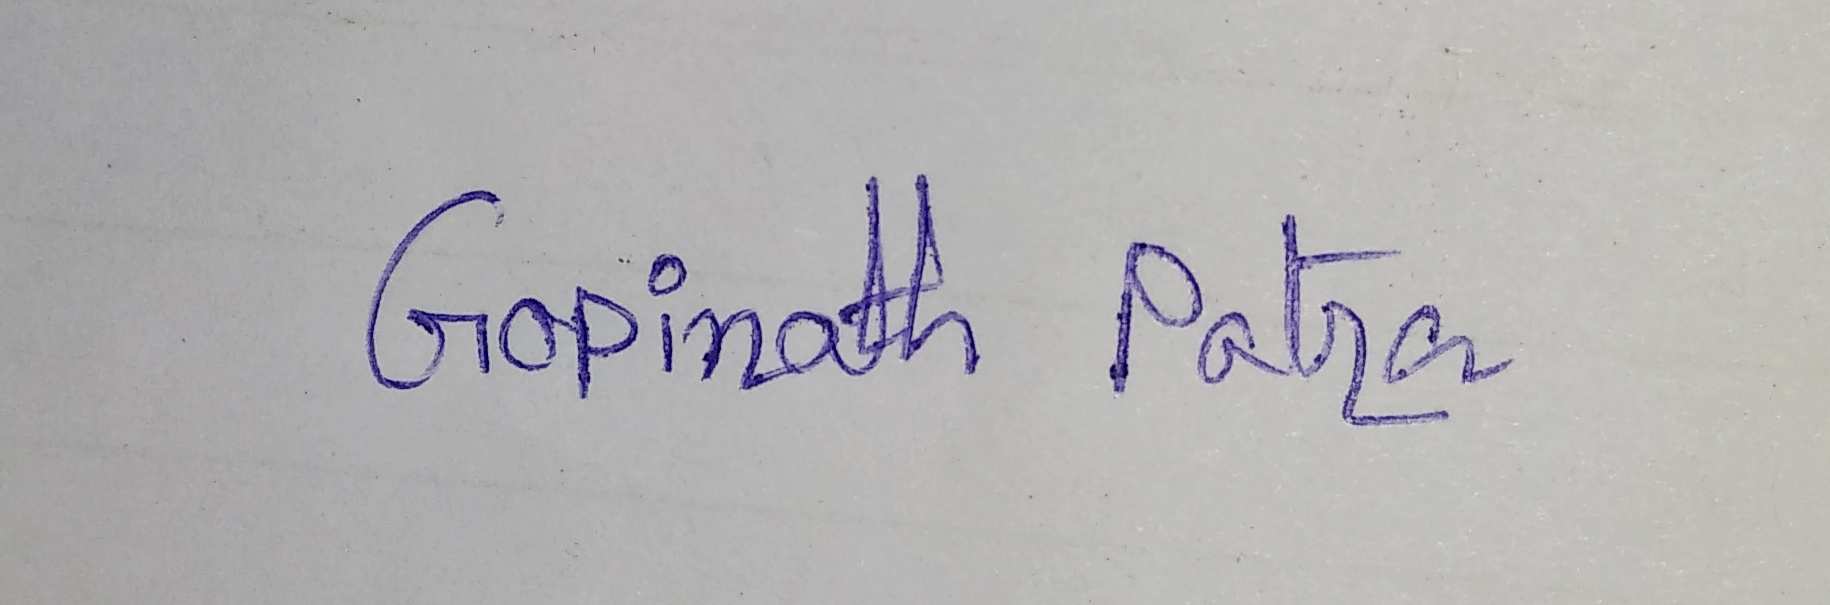 Gopinath Patra